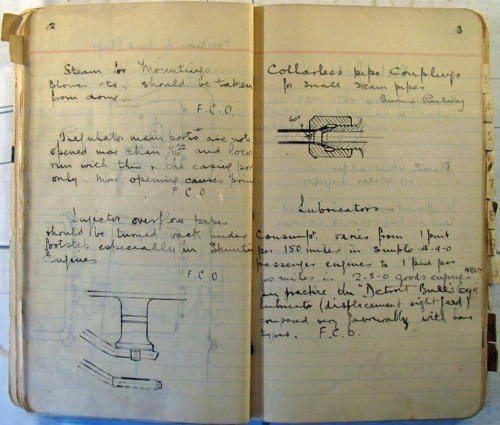 2
Steam for Mountings
Blower etc. should be taken
from dome.
F.C.O.
Regulator main ports are not
opened more than and locos
run with this & the easing port
only. More opening causes
F C O
Injector overflow pipes
should be turned back under
footsteps especially in Shunting
Engines
F.C.O
3
Collarless pipe Couplings
for small steam pipes
Burma Railway
60°
Lubricators
Consumpt. varies from 1 pint
per 150 miles in simple 4-4-0
passenger engines to 1 pint per
miles in 2-8-0 goods engines
In practice the "Detroit Bull's Eye"
lubricator (displacement sight feed)
very favourably with
types. F.C.O.